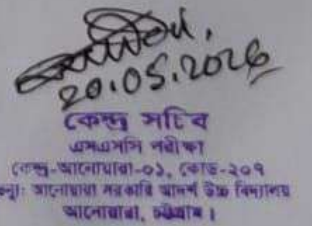 20.05.2026
কেন্দ্র সচিব
এসএসসি পরীক্ষা
কেন্দ্র-আনোয়ারা-০১, কোড-২০৭
আনোয়ারা সরকারি আদর্শ উচ্চ বিদ্যালয়
আনোয়ারা, চট্টগ্রাম।